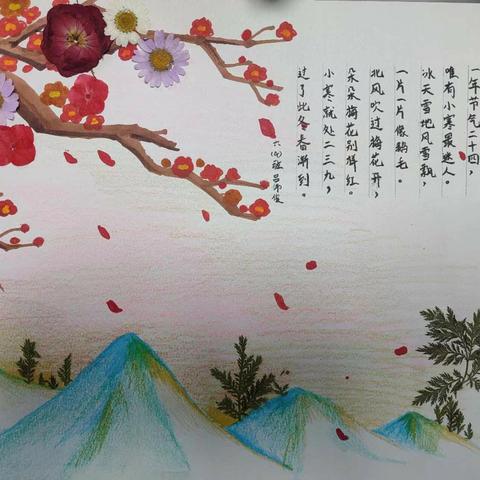 一年节气二十四，
唯有小寒最迷人。
冰天雪地风雪飘，
一片一片像鹅毛。
北风吹过梅花开，
朵朵梅花别样红。
小寒就处二三九，
过了此冬春渐到。